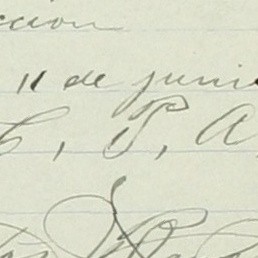 ccion
11 de juni
C, P, A